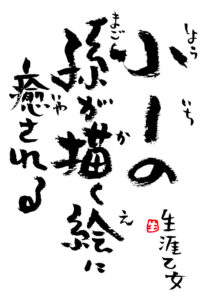 小一の
孫が描く絵に
癒される
生涯乙女
しょういち
まご
か
え
いや
生